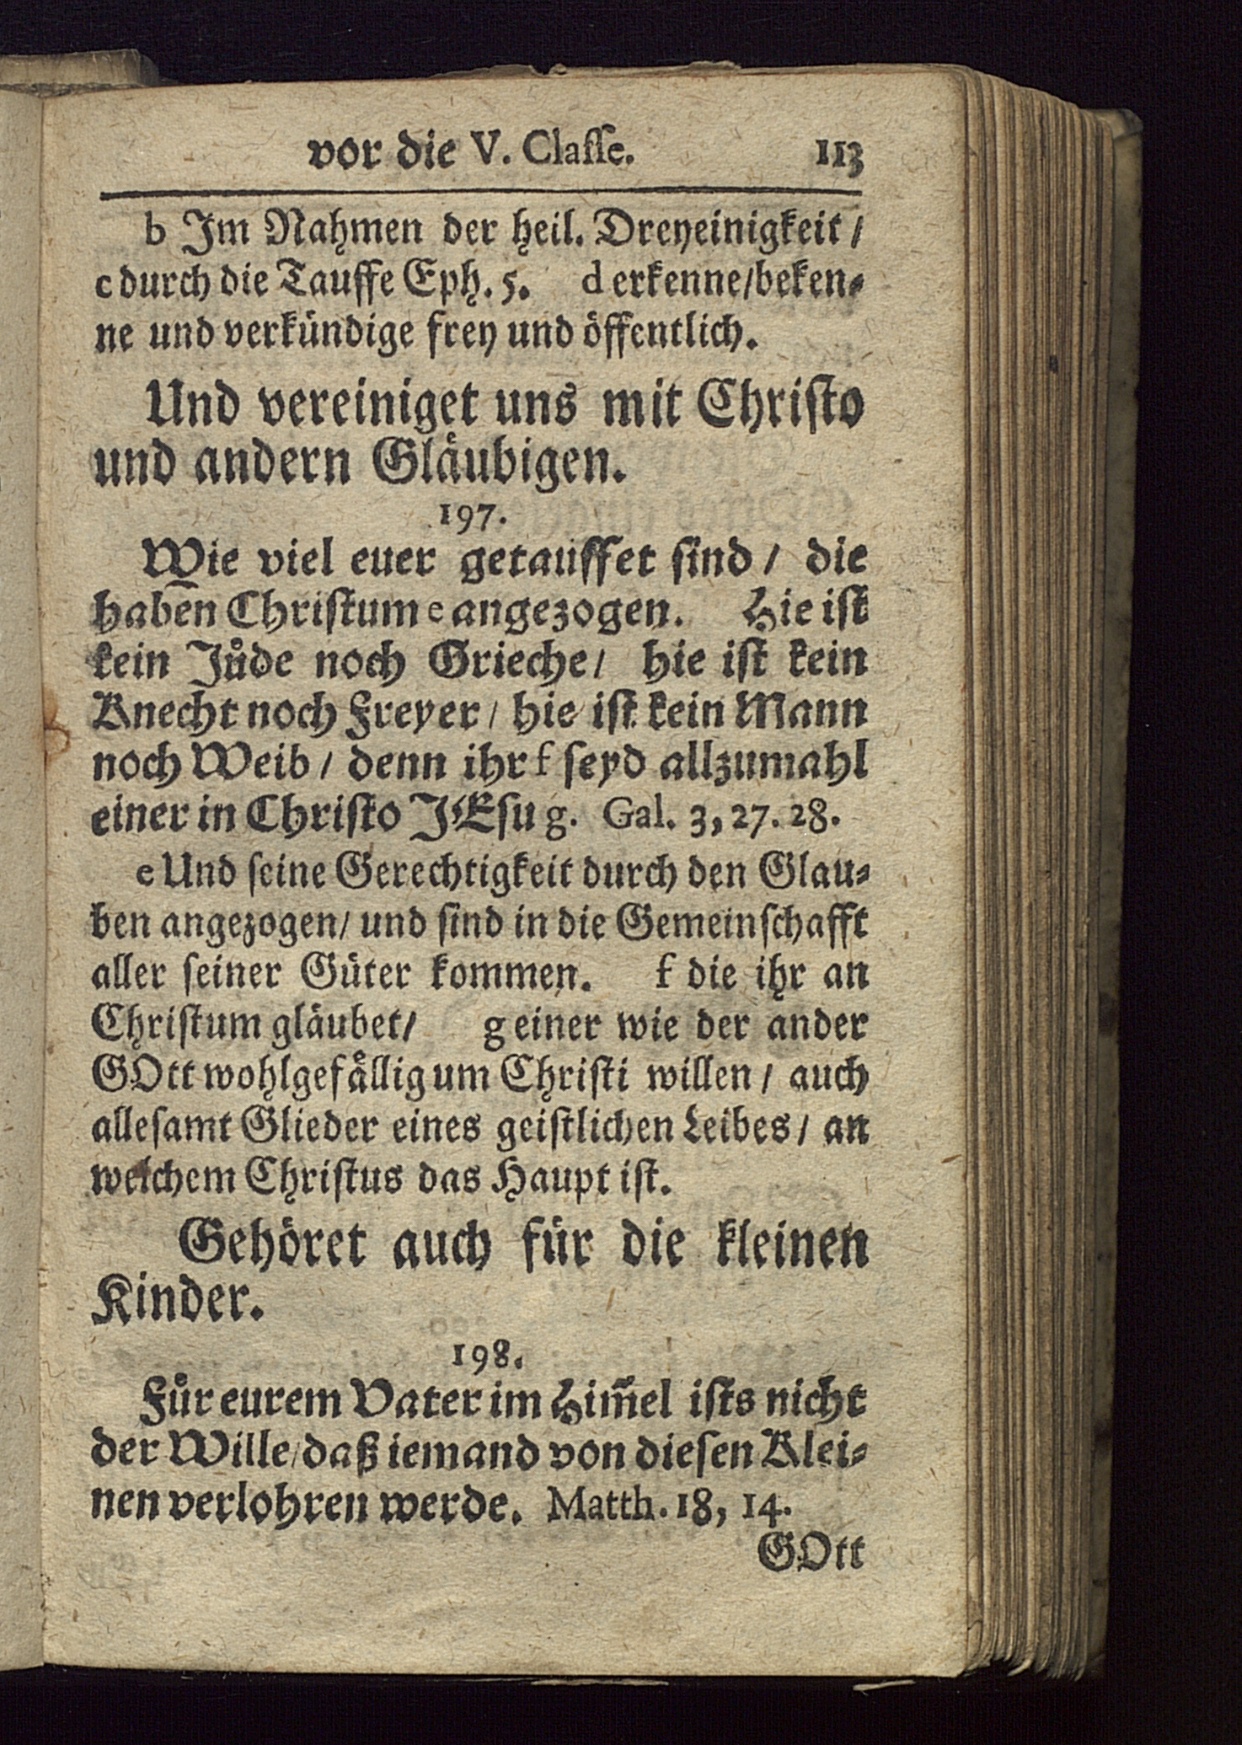 vor die V. Claſſe. 113
b Im Nahmen der heil. Dreyeinigkeit /
c durch die Tauffe Eph. 5. d erkenne/beken⸗
ne und verkündige frey und öffentlich.
Und vereiniget uns mit Chriſto
und andern Gläubigen.
197.
Wie viel euer getauffet ſind / die
haben Chriſtum e angezogen. Hie iſt
kein Jůde noch Grieche / hie iſt kein
Knecht noch Freyer / hie iſt kein Mann
noch Weib / denn ihr f ſeyd allzumahl
einer in Chriſto JEſu g. Gal. 3, 27. 28.
e Und ſeine Gerechtigkeit durch den Glau⸗
ben angezogen / und ſind in die Gemeinſchafft
aller ſeiner Güter kommen. f die ihr an
Chriſtum gläubet / g einer wie der ander
GOtt wohlgefällig um Chriſti willen / auch
alleſamt Glieder eines geiſtlichen Leibes / an
welchem Chriſtus das Haupt iſt.
Gehöret auch für die kleinen
Kinder.
198.
Fůr eurem Vater im Him̃el iſts nicht
der Wille / daß iemand von dieſen Klei⸗
nen verlohren werde. Matth. 18, 14.
GOtt